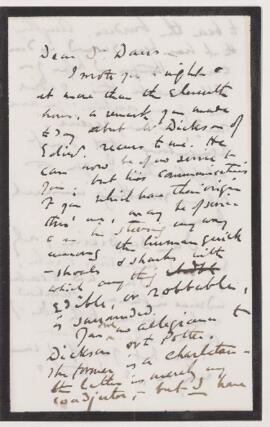 Dear Dr Davis
I wrote you a night &
at more than the Eleventh
hour, a remark you made
today about Dr Dickson of
Edinb. recurs to me. He
can now be of no service to
you; but his communications
to you, which have their origin
thro' me, may be of service
in showing any way
among the human quick
- shoods & sharks, with
which anything
edible, or robbable,
is surrounded.
no allegiance to
Dickson or Potter.
The former is a charletan -
the latter is merely my
coadjutor, - but I have